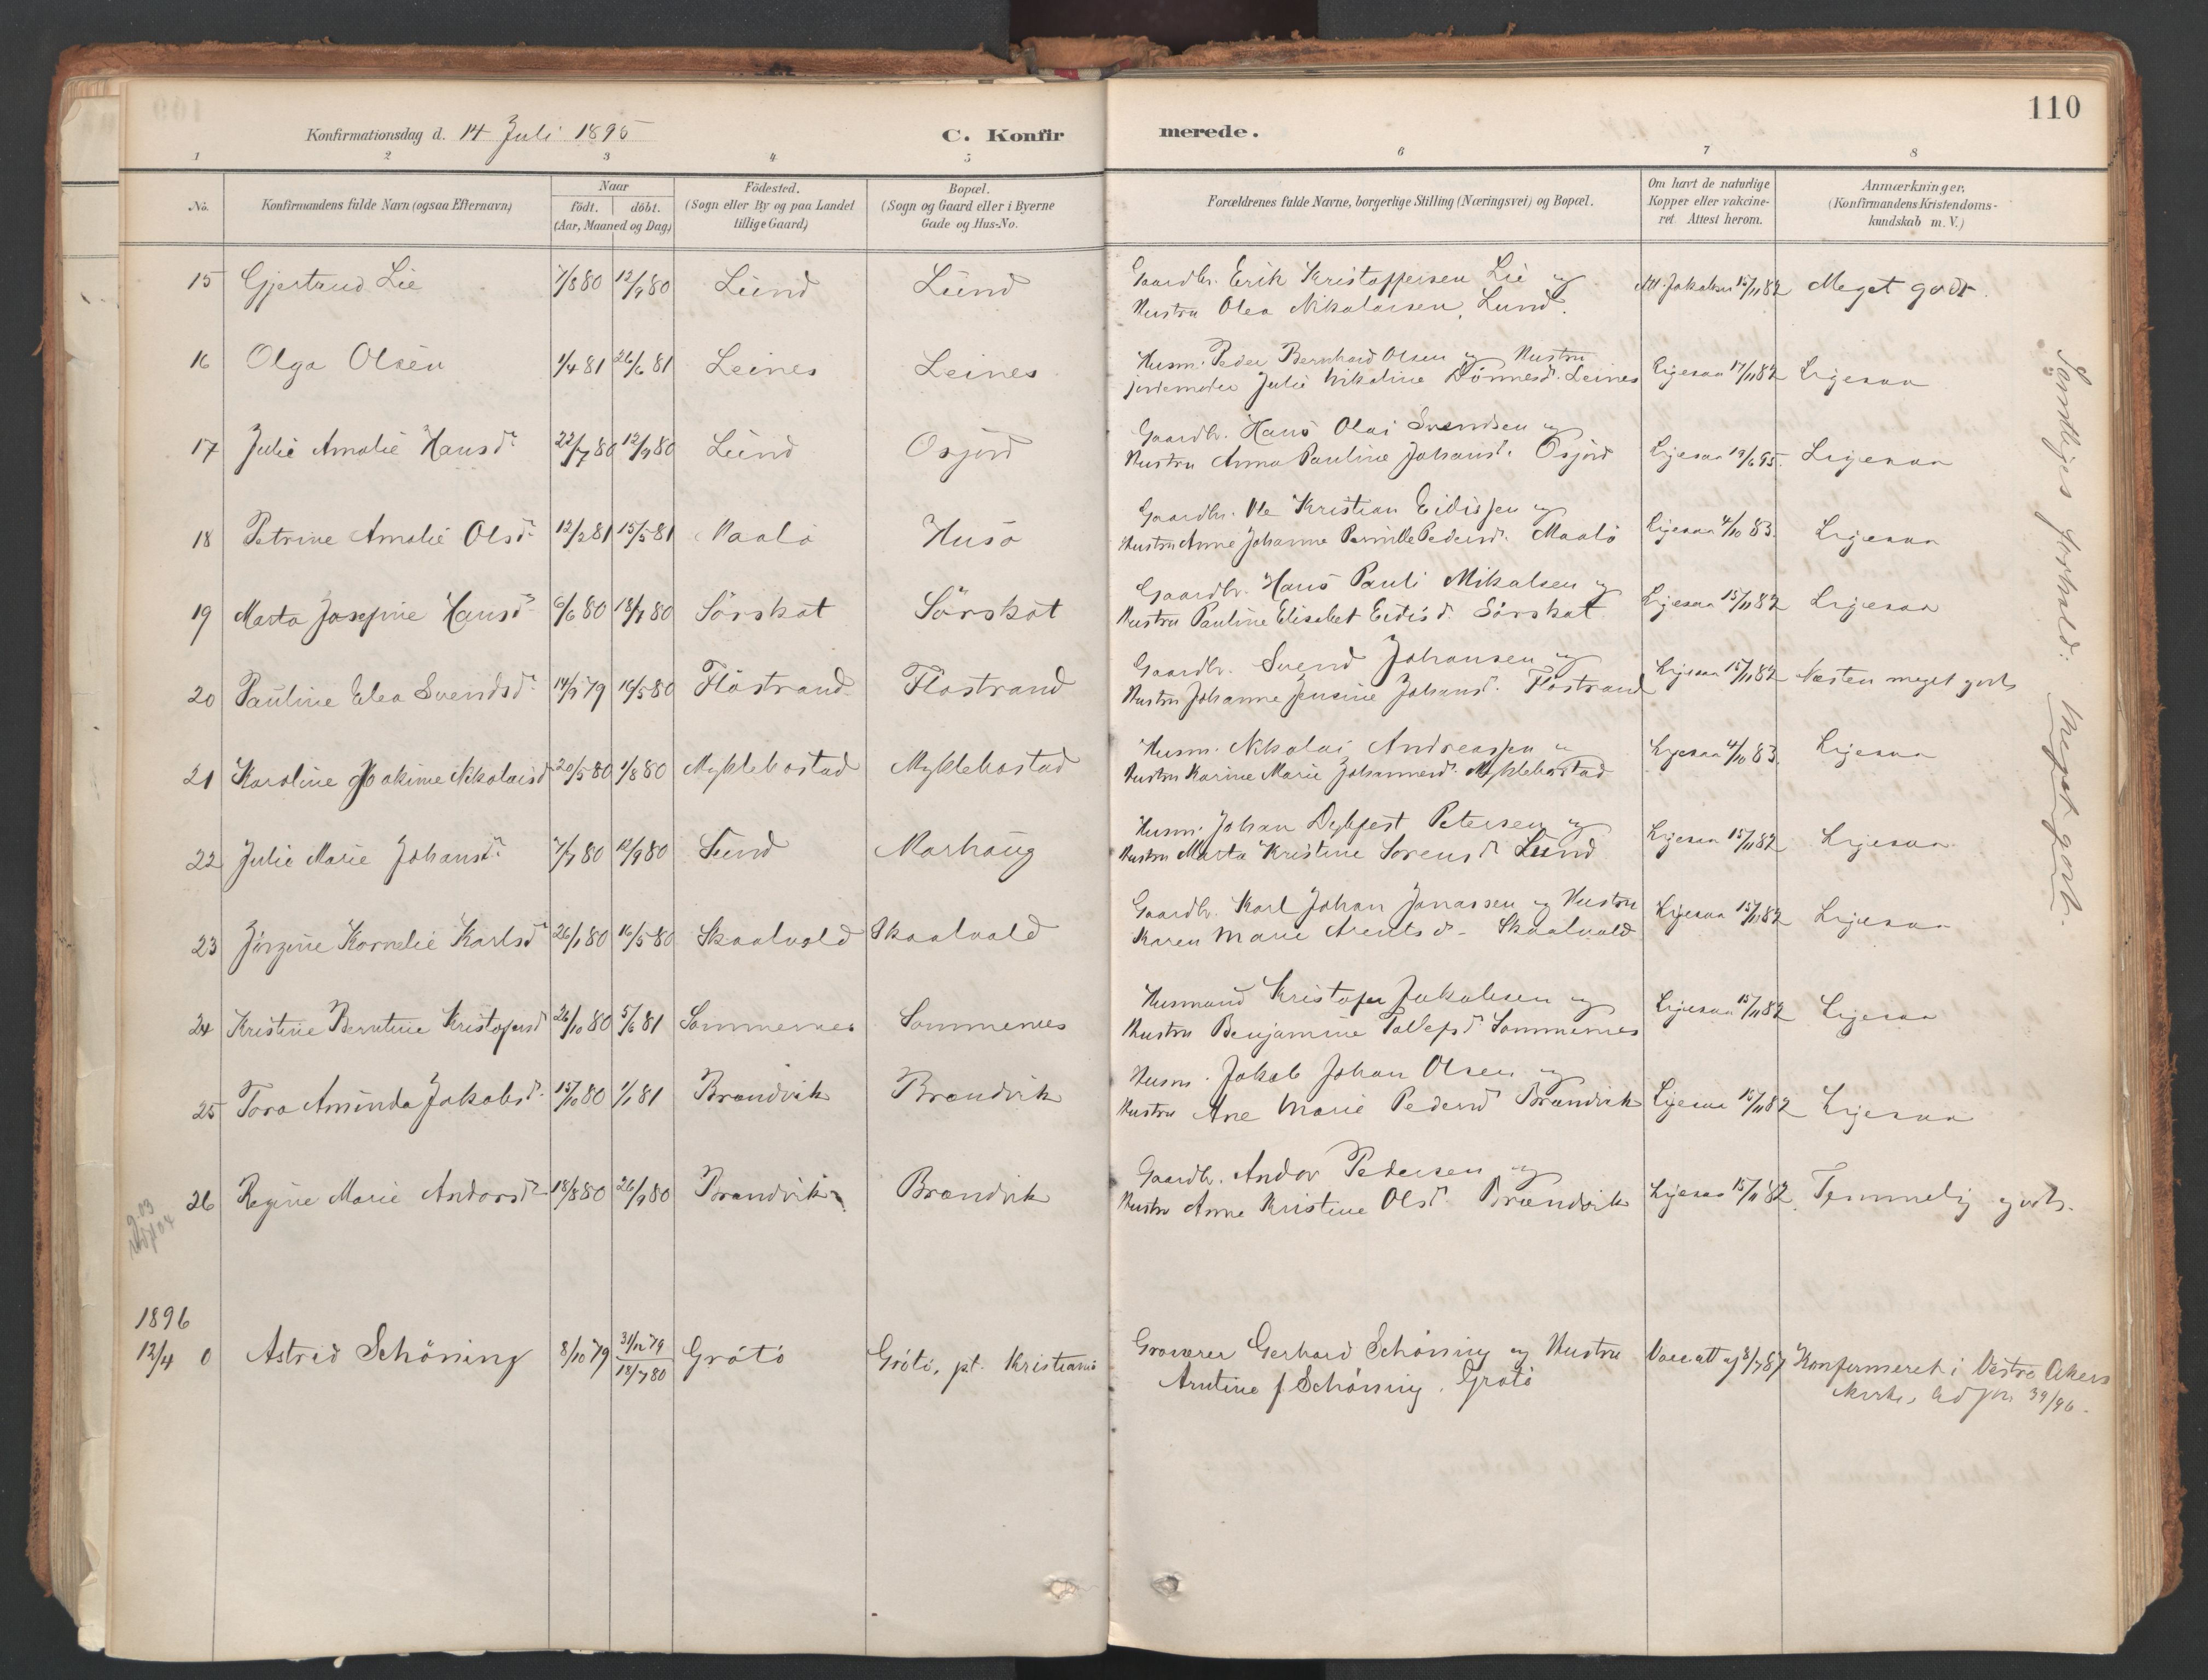 110
Konfirmationsdag d. 14 Juli 1895 C. Konfirmerede.
1 2 3 4 5 6 7 8
No. Konfirmandens fulde Navn (ogsaa Efternavn) Naar födt. döbt. (Aar, Maaned og Dag) Födested. (Sogn eller By og paa Landet tillige Gaard) Bopæl. (Sogn og Gaard eller i Byerne Gade og Hus-No. Forældrenes fulde Navne, borgerlige Stilling (Næringsvei) og Bopæl. Om havt de naturlige Kopper eller vakcineret. Attest herom. Anmærkninger, (Konfirmandens Kristendomskundskab m. V.)
15 Gjertrud Lie 7/8 80 12/9 80 Lund Lund Gaardbr. Erik Kristoffersen Lie og Att. Jakobsen 15/11 82 Meget godt.
Hustru Olea Nikolaisen, Lund.
16 Olga Olsen 1/4 81 26/6 81 Leines Leines Husm. Peder Bernhard Olsen og Hustru
jordemoder Julie Nikoline Dönnesd. Leines Ligesaa 17/11 82 Ligesaa
17 Julie Amalie Hansd. 22/7 80 12/9 80 Lund Osjord Gaardbr. Hans Olai Svendsen og
Hustru Anna Pauline Johansd. Osjord Ligesaa 19/6 95. Ligesaa
18 Petrine Amalie Olsd. 12/2 81 15/5 81 Maalö Husö Gaardbr. Ole Kristian Eidissen og
Hustru Anne Johanne Pernille Pedersd. Maalö Ligesaa 4/10 83. Ligesaa
19 Marta Josefine Hansd. 6/6 80 18/7 80 Sörskot Sörskot Gaardbr. Hans Pauli Mikalsen og
Hustru Pauline Elisabet Eidisd. Sörskot Ligesaa 15/11 82 Ligesaa
20 Pauline Elea Svendsd. 14/9 79 16/5 80 Flostrand Flostrand Gaardbr. Svend Johansen og
Hustru Johanne Jensine Johansd. Flostrand Ligesaa 15/11 82 Næsten meget godt
21 Karoline Joakime Nikolaisd 20/5 80 1/8 80 Myklebostad Myklebostad Husm. Nikolai Andreassen og
Hustru Karine Marie Johannesd. Myklebostad Ligesaa 4/10 83. Ligesaa
22 Julie Marie Johansd. 7/7 80 12/9 80 Lund Marhaug Husm. Johan Dybfest Petersen og
Hustru Marta Kristine Sorensd. Lund Ligesaa 15/11 82 Ligesaa
23 Jörgine Kornelie Karlsd. 26/1 80 16/5 80 Skaalvold Skaalvold Gaardbr. Karl Johan Jonassen og Hustru
Karen Marie Arentsd. Skaalvold Ligesaa 15/11 82 Ligesaa
24 Kristine Berntine Kristofersd 26/10 80 5/6 81 Sommernes Sommernes Husmand Kristofer Jakobsen og
Hustru Benjamine Tollefsd. Sommernes Ligesaa 15/11 82 Ligesaa
25 Tora Aminda Jakobsd. 15/10 80 1/1 81 Brændvik Brændvik Husm. Jakob Johan Olsen og
Hustru Ane Marie Pedersd. Brændvik Ligesaa 15/11 82 Ligesaa
26 Regine Marie Andorsd. 18/8 80 26/9 80 Brændvik Brændvik Gaardbr. Andor Pedersen og
Hustru Anne Kristine Olsd. Brændvik Ligesaa 15/11 82. Temmelig godt.
Samtliges forhold: Meget godt.
1896
12/4 0 Astrid Schöning 8/10 79 31/12 79 18/7 80 Grötö Grötö, pt. Kristiania Grosserer Gerhard Schöning og Hustru
Arntine f Schöning. Grötö Vacc att af 8/7 87 Konfirmeret i Vestre Akers
kirke, 39/96.